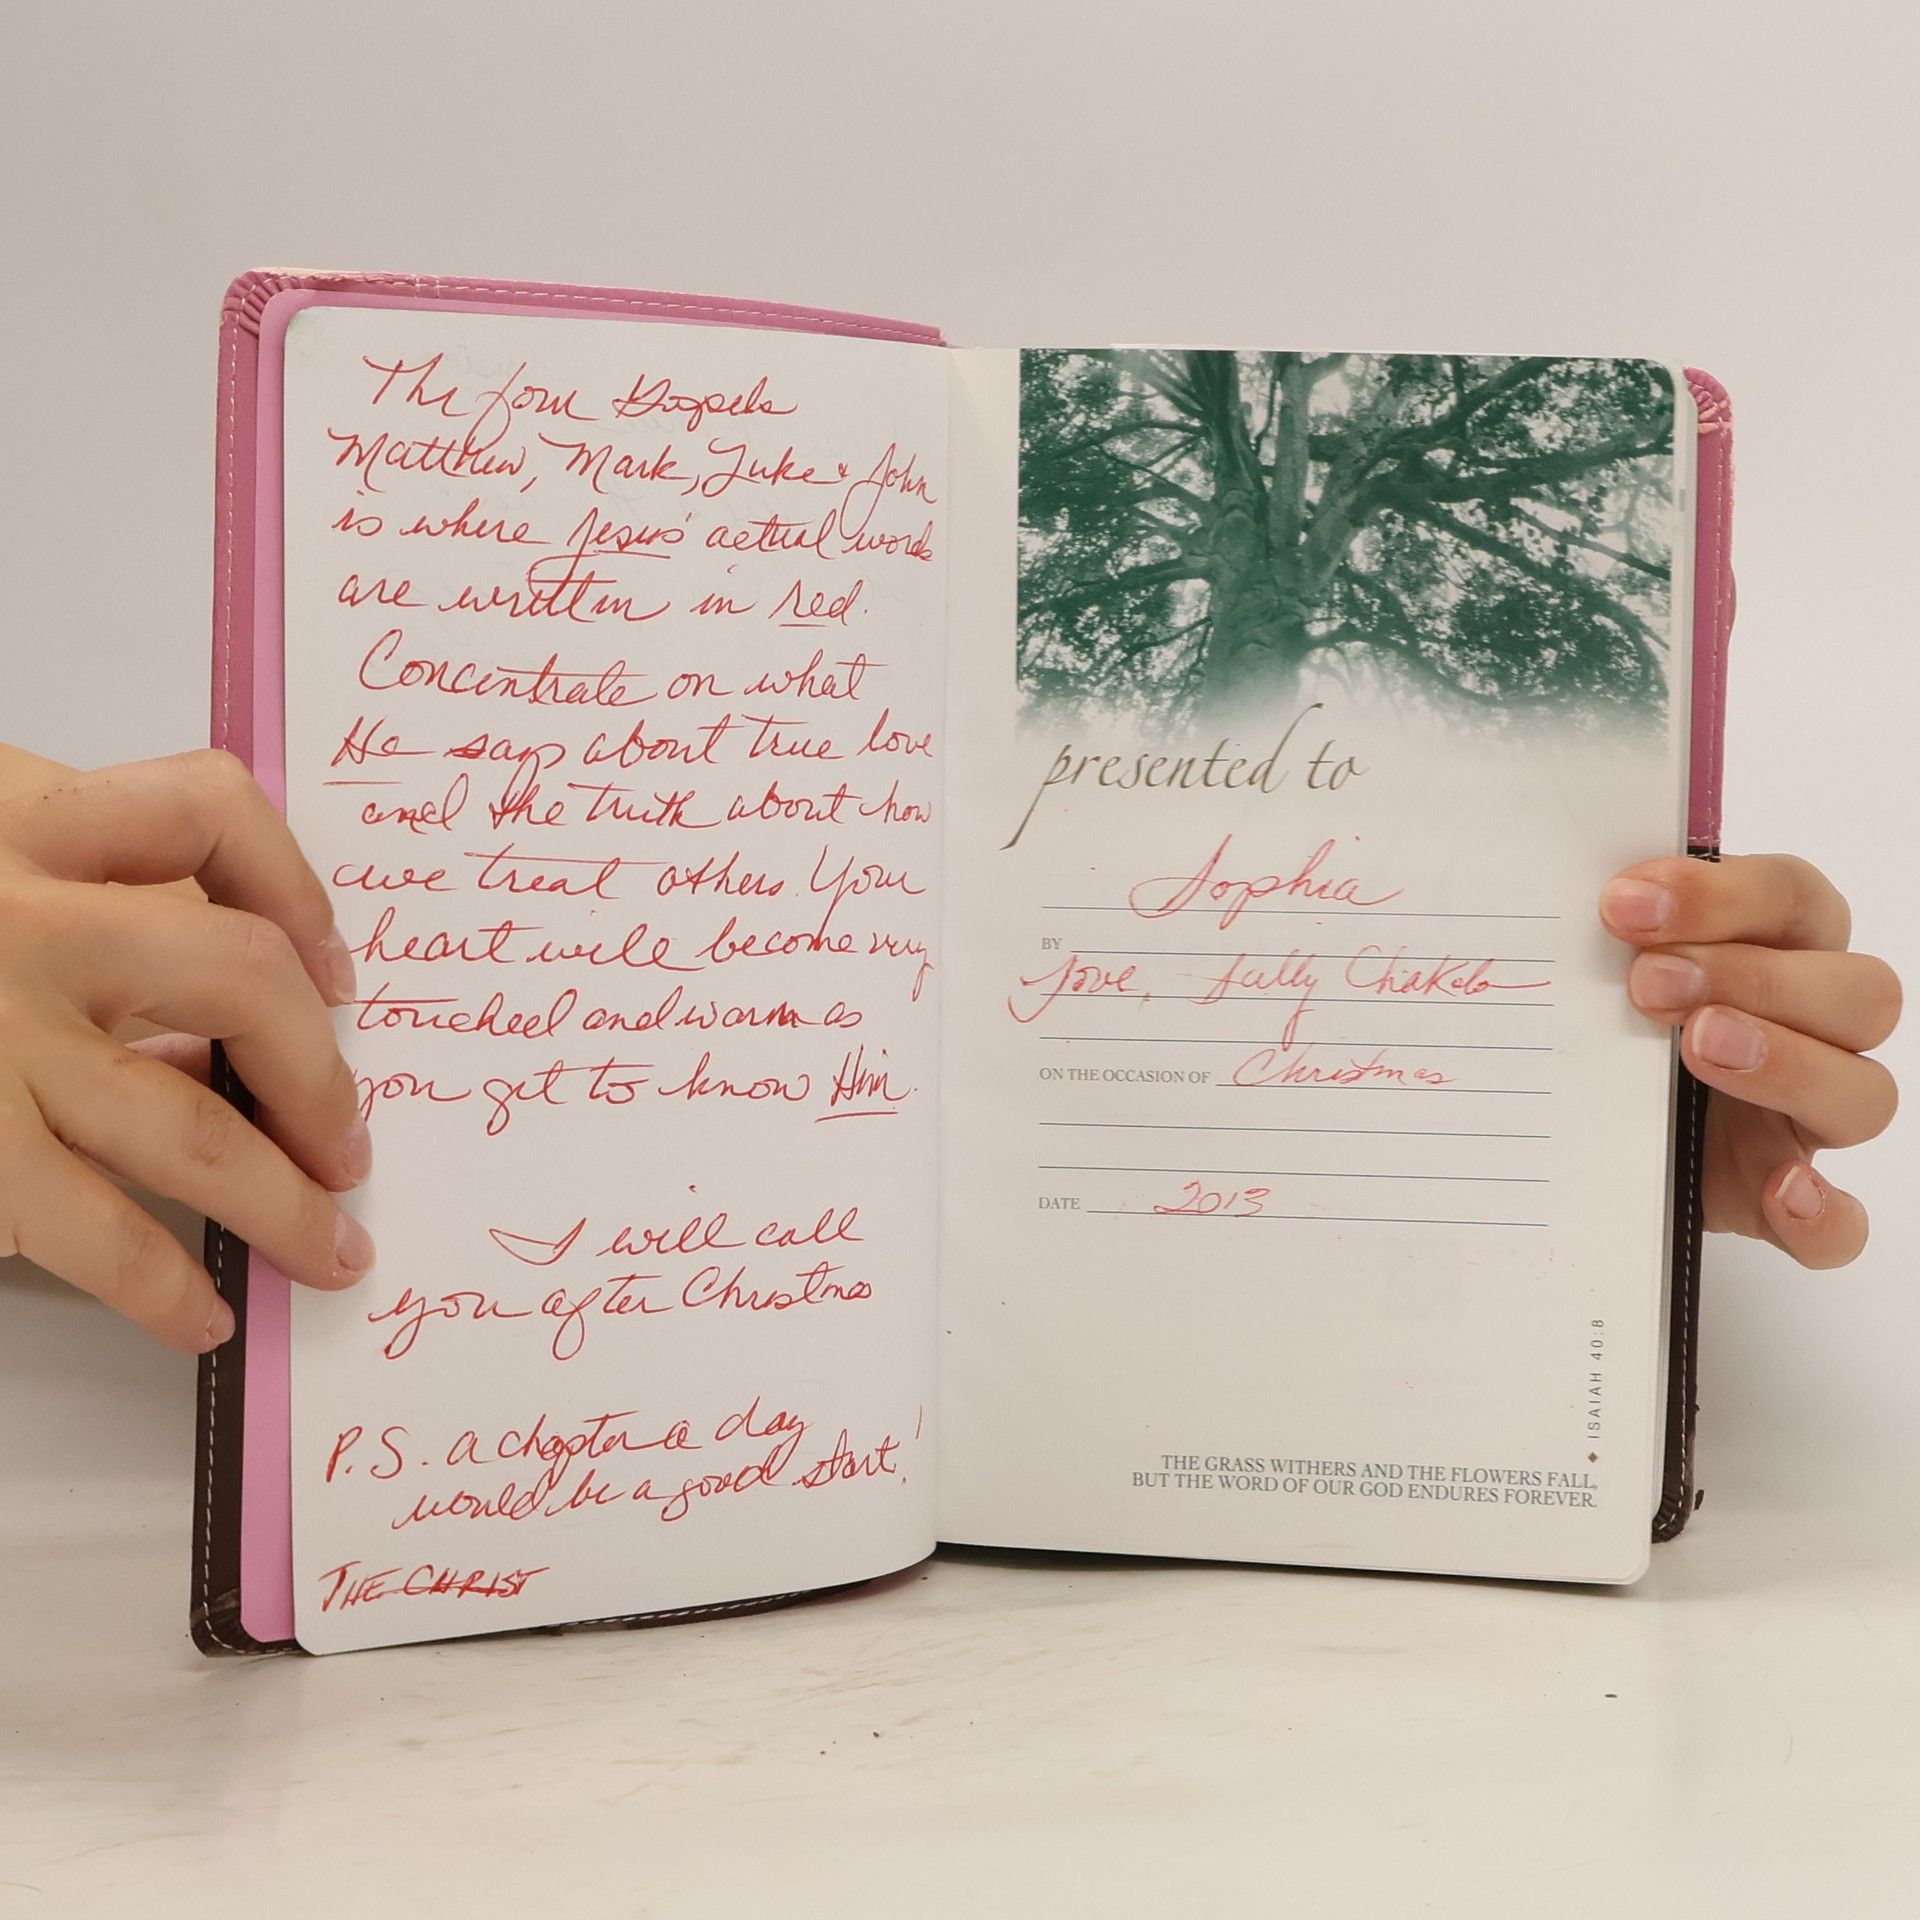 The four Gospels
Matthew, Mark, Luke & John
is where Jesus' actual words
are written in red.
Concentrate on what
He says about true love
and the truth about how
we treat others. Your
heart will become very
touched and warm as
you get to know Him.
I will call
you after Christmas
P.S. a chapter a day
would be a good start!
THE CHRIST
presented to
Sophia
BY
Love, Sally
ON THE OCCASION OF Christmas
DATE 2013
ISAIAH 40:8
THE GRASS WITHERS AND THE FLOWERS FALL,
BUT THE WORD OF OUR GOD ENDURES FOREVER.